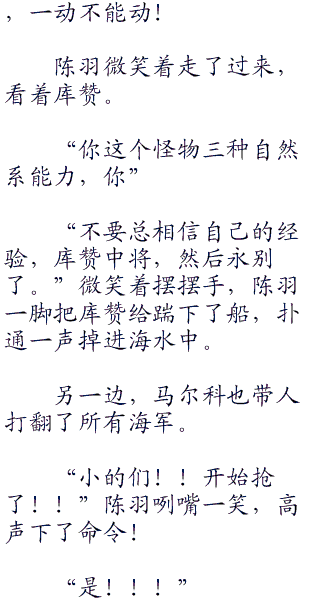 ，一动不能动！
陈羽微笑着走了过来，
看着库赞。
“你这个怪物三种自然
系能力，你”
“不要总相信自己的经
验，库赞中将，然后永别
了。”微笑着摆摆手，陈羽
一脚把库赞给踹下了船，扑
通一声掉进海水中。
另一边，马尔科也带人
打翻了所有海军。
“小的们！！开始抢
了！！”陈羽咧嘴一笑，高
声下了命令！
“是！！！”